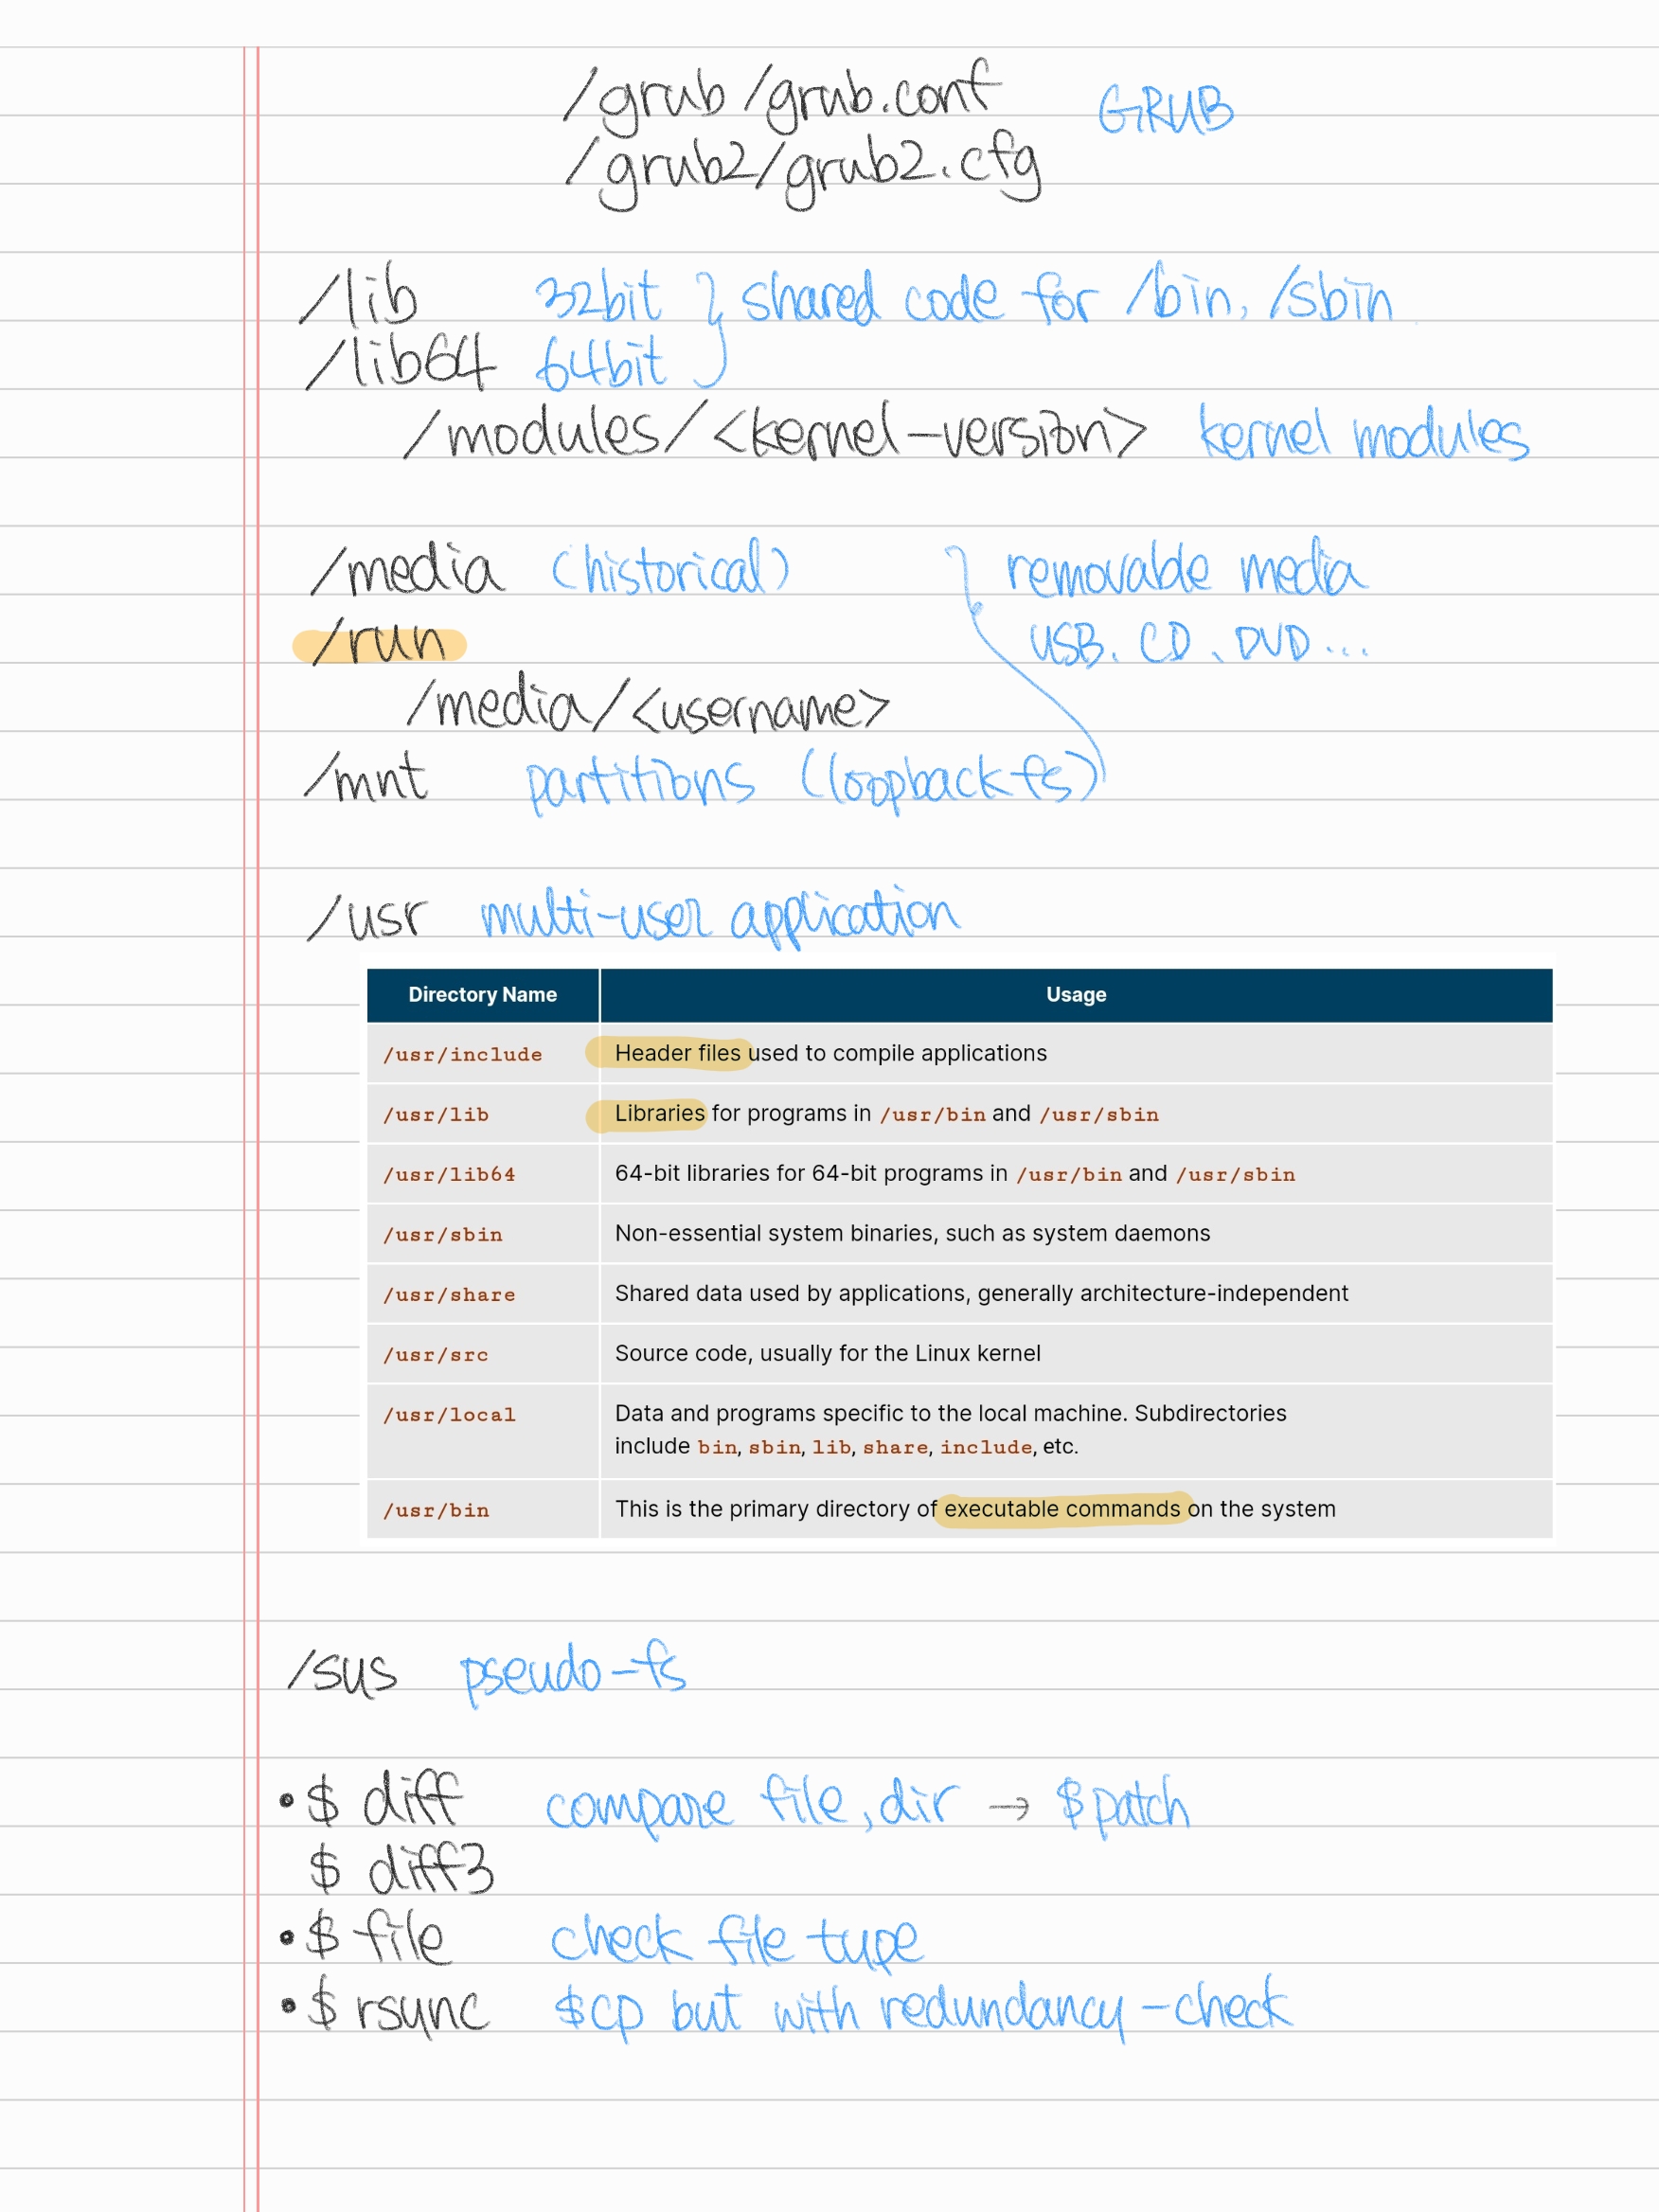 /grub/grub.conf GRUB
/grub2/grub2.cfg
/lib 32bit } shared code for /bin, /sbin
/lib64 64bit
/modules/<kernel-version> kernel modules
/media (historical) } removable media
/run USB, CD, DVD...
/media/<username>
/mnt partitions (loopback fs)
/usr multi-user application
Directory Name Usage
/usr/include Header files used to compile applications
/usr/lib Libraries for programs in /usr/bin and /usr/sbin
/usr/lib64 64-bit libraries for 64-bit programs in /usr/bin and /usr/sbin
/usr/sbin Non-essential system binaries, such as system daemons
/usr/share Shared data used by applications, generally architecture-independent
/usr/src Source code, usually for the Linux kernel
/usr/local Data and programs specific to the local machine. Subdirectories
include bin, sbin, lib, share, include, etc.
/usr/bin This is the primary directory of executable commands on the system
/sys pseudo-fs
• $ diff compare file, dir → $patch
$ diff3
• $ file check file type
• $ rsync $cp but with redundancy-check